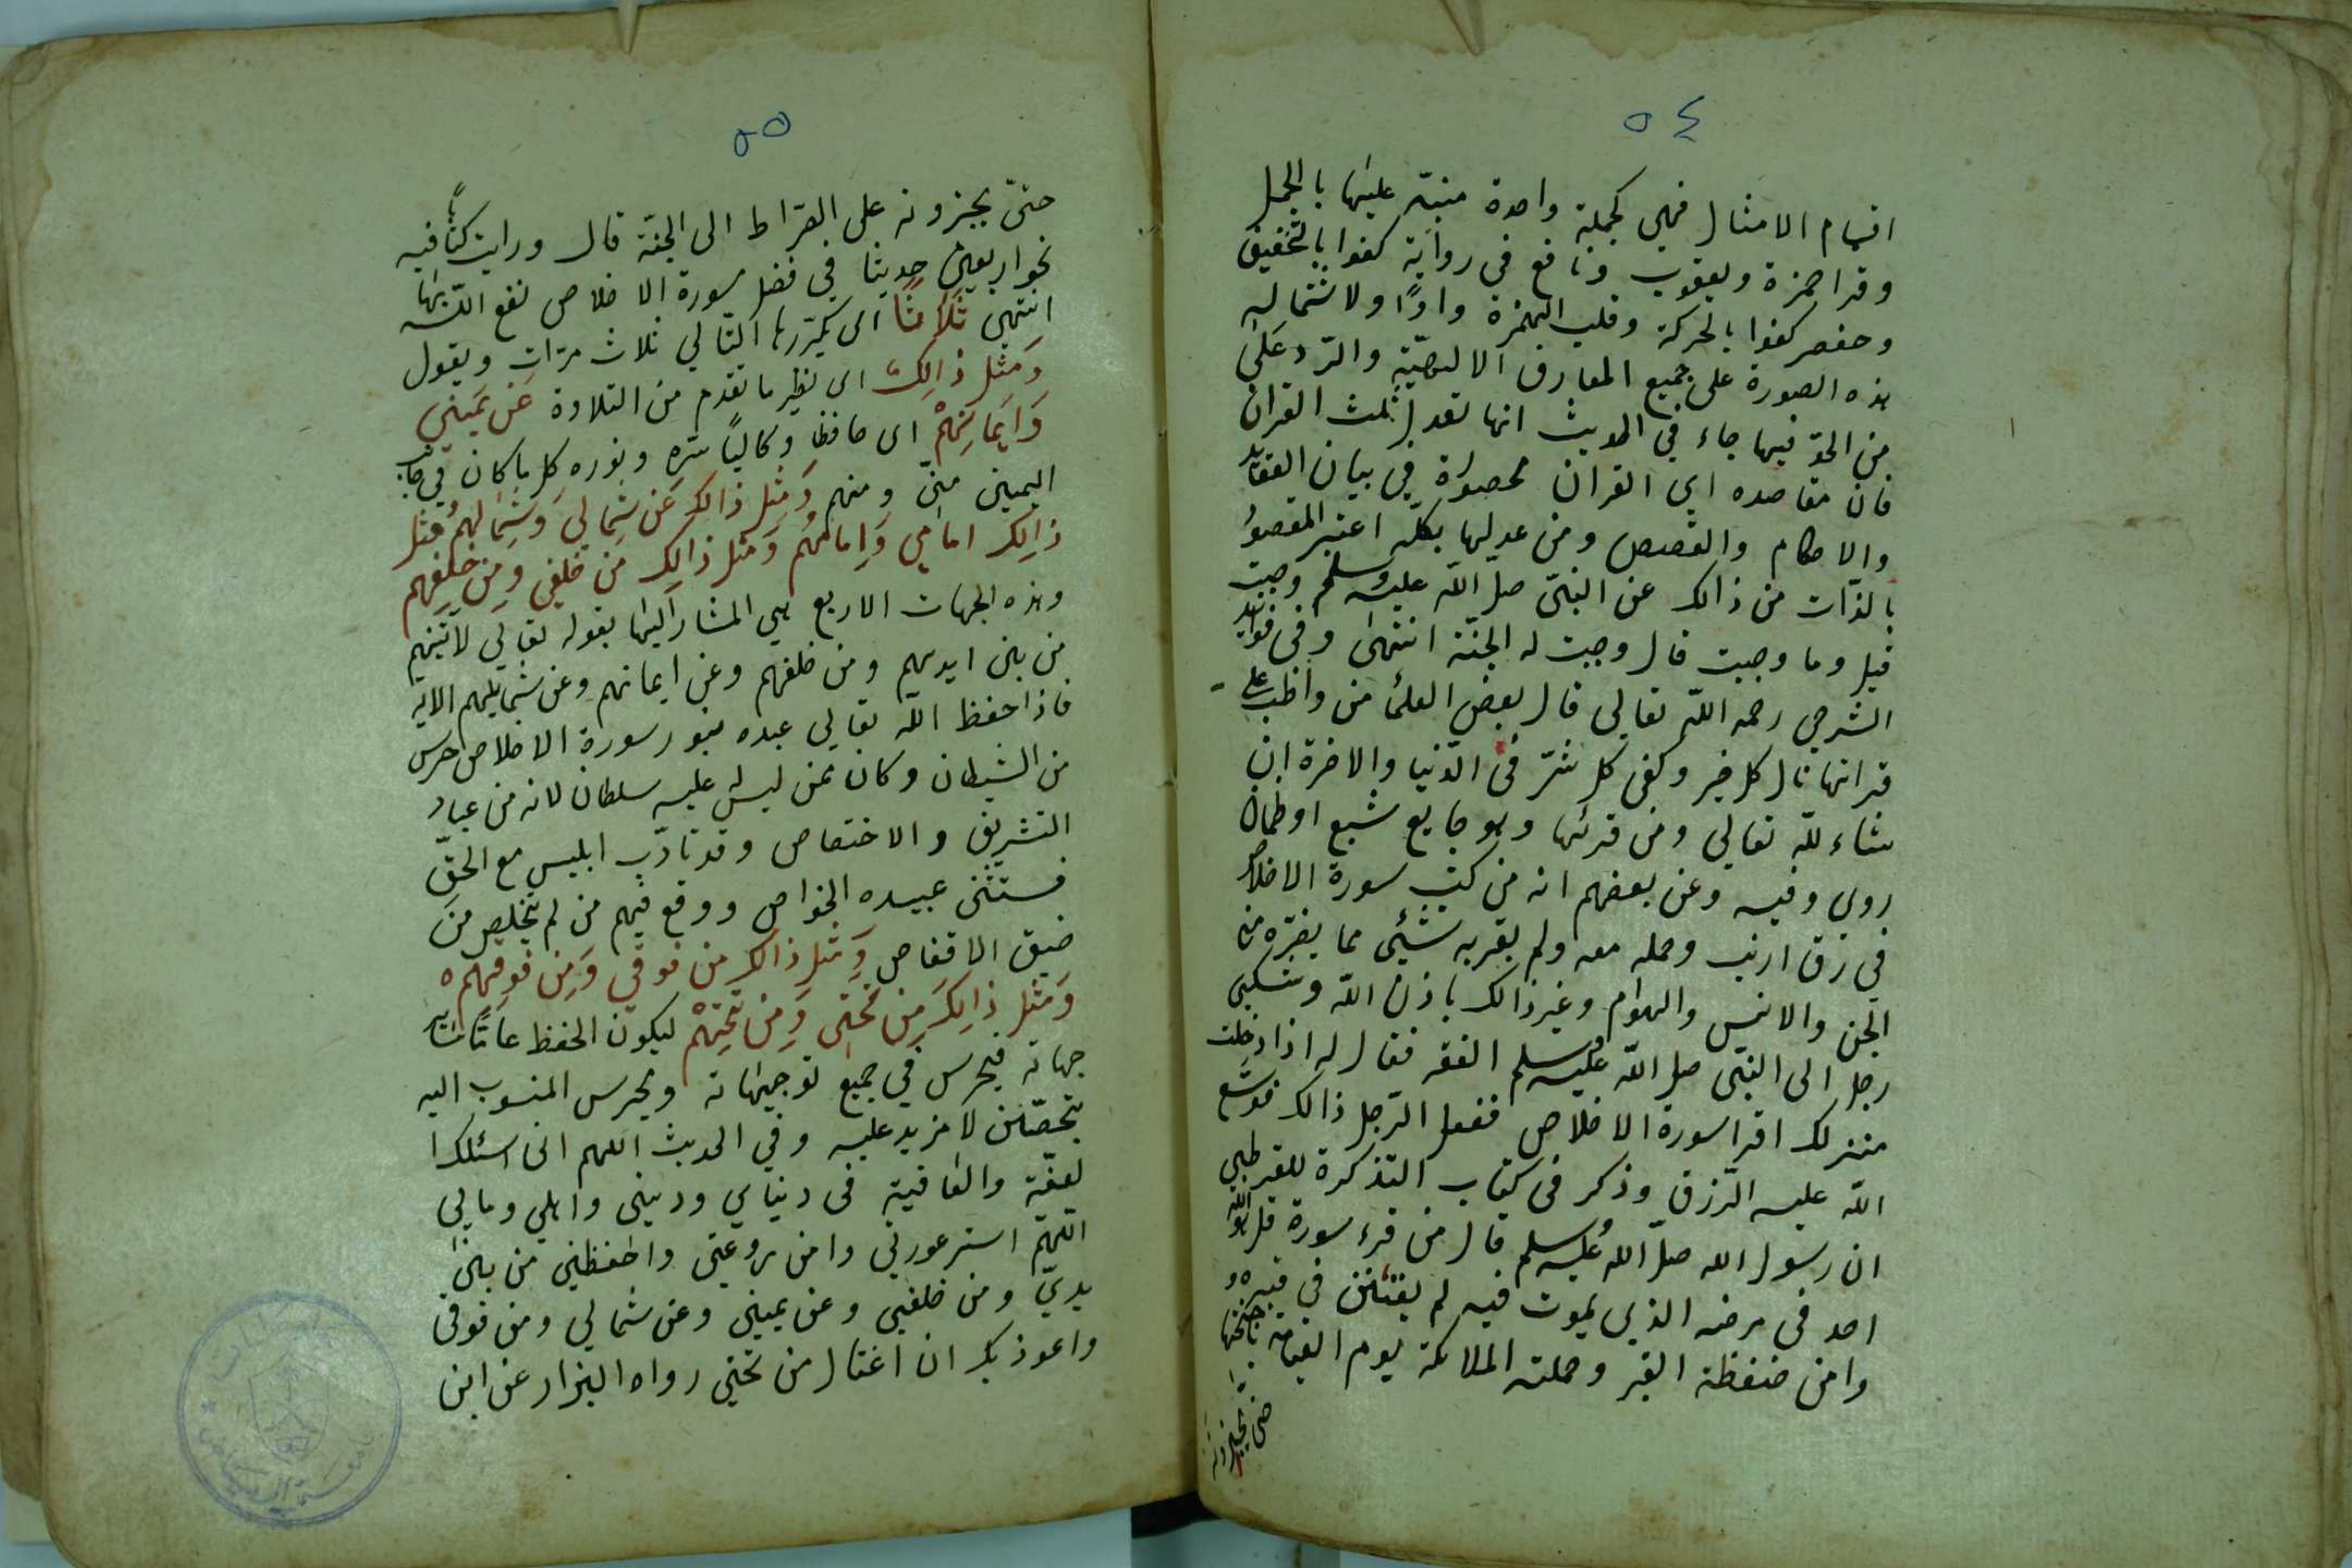 ٥٤
اقسام الامثال فهي كجملة واحدة منبّه عليها بالجمل
وقرا حمزة ويعقوب ونافع في رواية كفوا بالتخفيف
وحفص كفوا بالحركة وقلب الهمزة واوًا ولاشتمال
هذه الصورة على جميع المعارف الالهيّة والرّد على
من الحد فيها جاء في الحديث انها تعدل ثلث القران
فان مقاصده اي القران محصورة في بيان العقايد
والاحكام والقصص ومن عدلها بكلّه اعتبر المقصود
بالذّات من ذالك عن النبيّ صلّ اللّه عليه وسلم وجبت
قيل وما وجبت قال وجبت له الجنّة انتهى وفي فوايد
الشرجي رحمه اللّه تعالي قال بعض العلما من واظب على
قراتها نال كل خير وكفى كل شرّ في الدّنيا والاخرة ان
شاء للّه تعالي ومن قرئها وهو جايع شبع او ظمان
روي وفيه وعن بعضهم انه من كتب سورة الاخلاص
في رق ارنب وحمله معه ولم يقربه شئي مما يضرّه من
الجن والانس والهوام وغير ذالك باذن اللّه وشكي
رجل الى النبّى صل اللّه عليه وسلم الفقر فقال له اذا دخلت
منزلك اقرا سورة الاخلاص ففعل الرّجل ذالك فوسّع
اللّه عليه الرّزق وذكر في كتاب التذكرة للقرطبي
ان رسول الله صلّ اللّه عليه وسلم قال من قرء سورة قل هو اللّه
احد في مرضه الذي يموت فيه لم يفتتن في قبره و
وامن ضغظة القبر وحملته الملائكة يوم القيامة باجنحتها
حتى يجيزونه
٥٥
حتىّ يجيزونه على الصّراط الى الجنّة قال ورايت كتابًا فيه
نحو اربعين حديثا في فضل سورة الاخلاص نفع اللّه بها
انتهى ثَلَاثًا اى يكرّرها التّالي ثلاث مرّات ويقول
وَمثل ذالِكَ اى نظير ما تقدم من التلاوة عَن يَميني
وَاَيمانِهمْ اى حافظا وكاليًا سّره ونوره كل ما كان في جانب
اليمين منىّ ومنهم وَمثل ذالِكَ عَن شِمالي وَشِمالهِمْ مثل
ذالِك امَامي وَاِمامهُم وَمثل ذالِك مِن خلفي وَمِن خَلفِهم
وهذه الجهات الاربع هي المشار اليها بقوله تعالي لآتينهم
من بين ايديهم ومن خلفهم وعن ايمانهم وعن شمايلهم الايه
فاذا حفظ اللّه تعالي عبده بنور سورة الاخلاص حرس
من الشيطان وكان ممن ليس له عليه سلطان لانه من عباد
التشريف والاختصاص وقد تادّب ابليس مع الحقّ
فستثنى عبيده الخواص ووقع فيهم من لم يتخلص من
ضيق الاقفاص وَمثل ذالك مِن فوقي وَمِن فوقِهم ه
وَمثل ذالِكَ مِن تحَتي وَمِن تحتِهمْ ليكون الحفظ عامًّا ساير
جهاته فيحرس في جميع توجيهاته ويحرس المنسوب اليه
بتحصّن لا مزيد عليه وفي الحديث اللهم انى اسئلك ا
لعفّة والعافية في دنياي وديني واهلي ومالي
اللّهمّ استر عورتي وامن روعتي واحفظني من بين
يديّ ومن خلفي وعن يميني وعن شمالي ومن فوقى
واعوذ بك ان اغتال من تحتي رواه البزار عن ابن